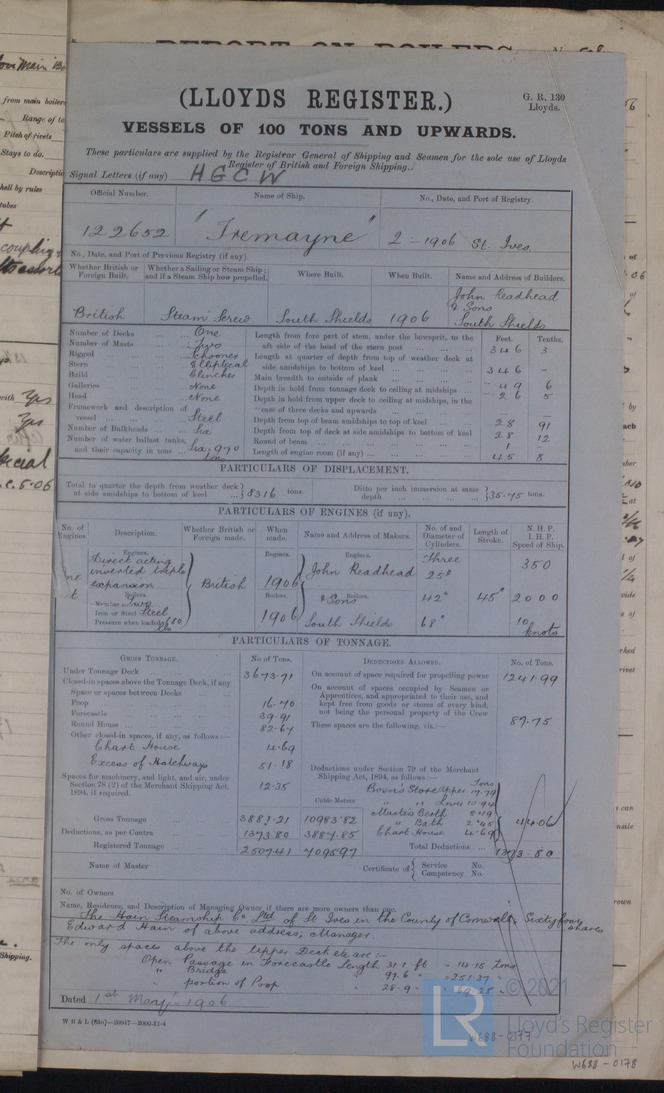 REPORT ON BOILERS
(LLOYDS REGISTER.)
G. R. 130
Lloyds.
VESSELS OF 100 TONS AND UPWARDS.
These particulars are supplied by the Registrar General of Shipping and Seamen for the sole use of Lloyds
Register of British and Foreign Shipping.
Signal Letters (if any) HGCW
Official Number. Name of Ship. No., Date, and Port of Registry.
122652 "Tremayne" 2 - 1906 St. Ives.
No., Date, and Port of Previous Registry (if any)
Whether British or Foreign Built. Whether a Sailing or Steam Ship; and if a Steam Ship how propelled. Where Built. When Built. Name and Address of Builders.
British Steam Screw South Shields 1906 John Readhead & Sons South Shields
Number of Decks One
Number of Masts Two
Rigged Schooner
Stern Elliptical
Build Clincher
Galleries None
Head None
Framework and description of vessel Steel
Number of Bulkheads Six
Number of water ballast tanks, and their capacity in tons Six: 970 tons
Feet. Tenths.
Length from fore part of stem, under the bowsprit, to the aft side of the head of the stern post 346 3
Length at quarter of depth from top of weather deck at side amidships to bottom of keel 346 -
Main breadth to outside of plank 49 6
Depth in hold from tonnage deck to ceiling at midships 26 5
Depth in hold from upper deck to ceiling at midships, in the case of three decks and upwards
Depth from top of beam amidships to top of keel 28 91
Depth from top of deck at side amidships to bottom of keel 28 12
Round of beam 1
Length of engine room (if any) 45 8
PARTICULARS OF DISPLACEMENT.
Total to quarter the depth from weather deck at side amidships to bottom of keel 8316 tons. Ditto per inch immersion at same depth 35.75 tons.
PARTICULARS OF ENGINES (if any).
No. of Engines. Description. Whether British or Foreign made. When made. Name and Address of Makers. No. of and Diameter of Cylinders. Length of Stroke. N. H. P. I. H. P. Speed of Ship.
Engines. Engines. Engines.
Direct acting inverted triple expansion British 1906 John Readhead Three 25" 350
Boilers. Boilers. Boilers.
Number Two & Sons 42" 45" 2000
Iron or Steel Steel 1906 South Shields 68" 10 knots
Pressure when loaded 180 lbs
PARTICULARS OF TONNAGE.
GROSS TONNAGE. No of Tons. DEDUCTIONS ALLOWED. No. of Tons.
Under Tonnage Deck 3673.71
On account of space required for propelling power 1241.99
Closed-in spaces above the Tonnage Deck, if any
Space or spaces between Decks
Poop 16.70
Forecastle 39.91
Round House 82.67
On account of spaces occupied by Seamen or Apprentices, and appropriated to their use, and kept free from goods or stores of every kind, not being the personal property of the Crew 87.75
These spaces are the following, viz.:—
Other closed-in spaces, if any, as follows:—
Chart House 4.69
Excess of Hatchways 51.18
Spaces for machinery, and light, and air, under Section 78 (2) of the Merchant Shipping Act, 1894, if required. 12.35
Deductions under Section 79 of the Merchant Shipping Act, 1894, as follows:—
Tons
Cubic Metres
Bosn's Store Upper 17.79
" " Lower 10.94
Master's Berth
" Bath 2.45
Chart House 4.69
44.06
Gross Tonnage 3881.21 10983.82
Deductions, as per Contra 1373.80 3887.85
Registered Tonnage 2507.41 7095.97
Total Deductions 1373.80
Name of Master Certificate of Service No. Competency No.
No. of Owners
Name, Residence, and Description of Managing Owner if there are more owners than one.
The Hain Steamship Co. Ltd of St Ives in the County of Cornwall; Sixtyfour shares
Edward Hain of above address, Manager.
The only spaces above the Upper Deck etc are:-
Open Passage in Forecastle Length 31.7 ft - 14.15 Tons
" Bridge 97.6 - 251.37
" portion of Poop 28.9
Dated 1st May 1906
© 2021
Lloyd's Register
Foundation
LR
W688-0177
W688-0178